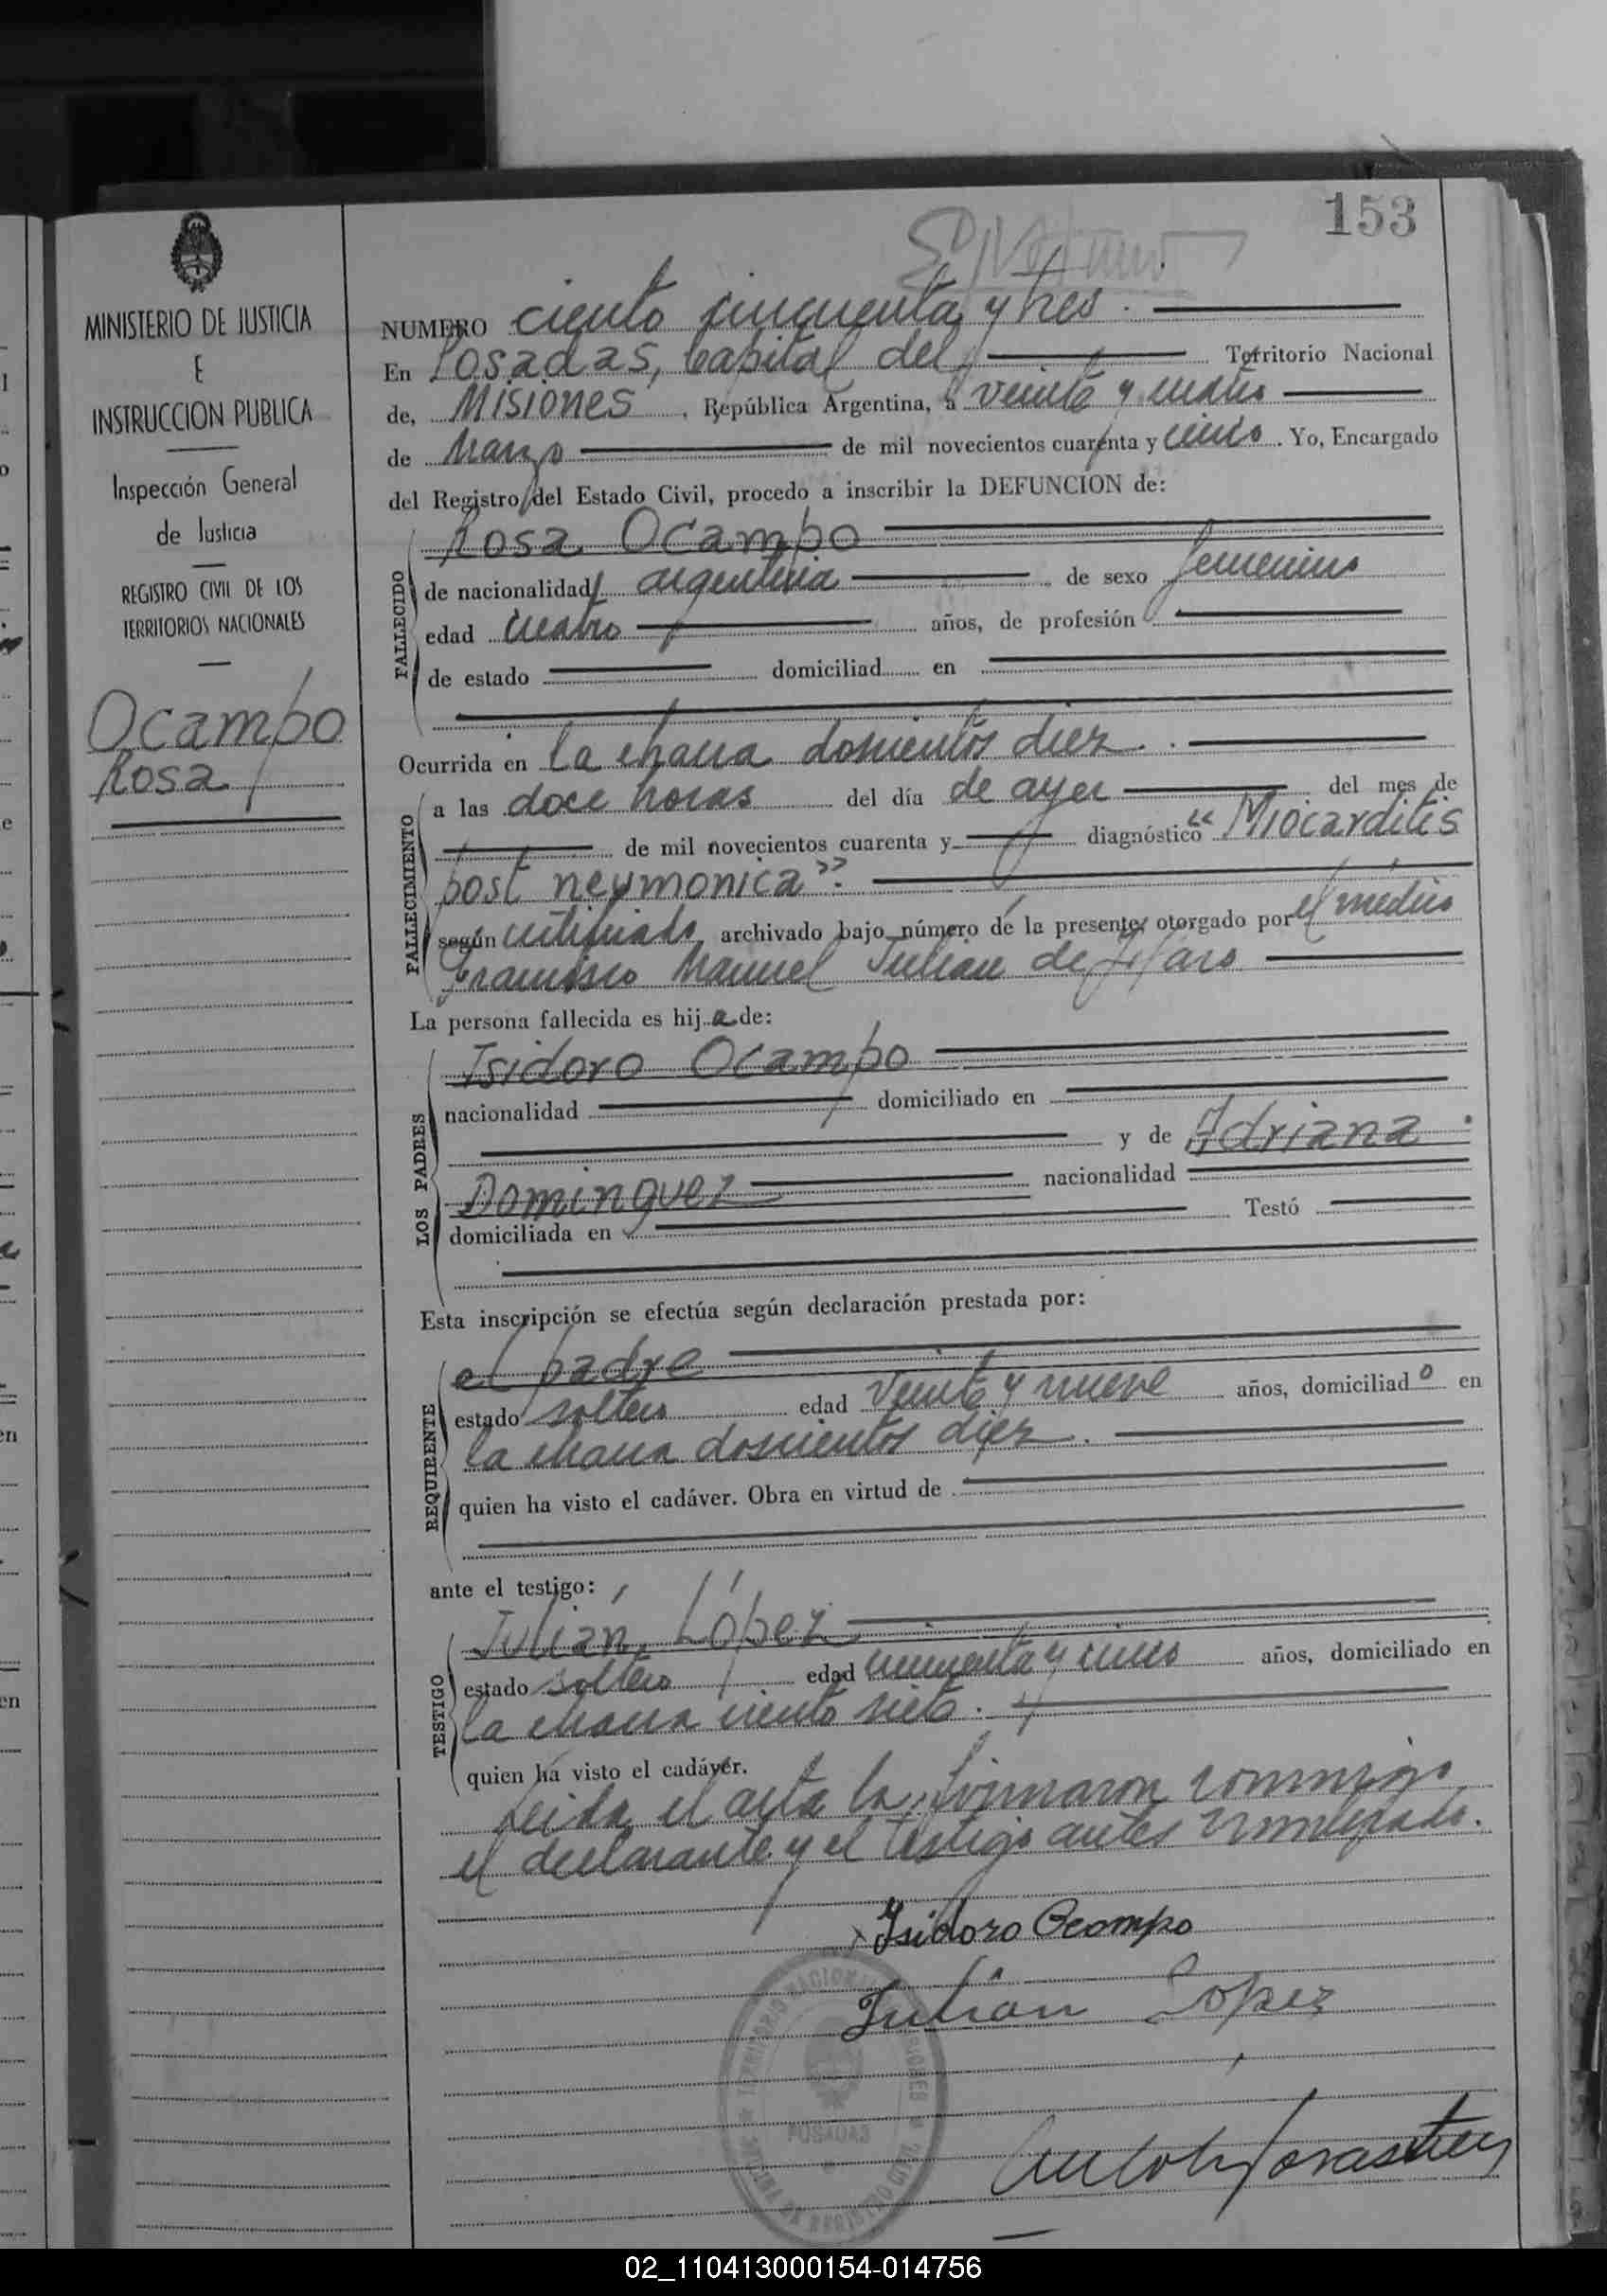 153
MINISTERIO DE JUSTICIA
E
INSTRUCCION PUBLICA
Inspección General
de Justicia
REGISTRO CIVIL DE LOS
TERRITORIOS NACIONALES
Ocampo
Rosa
NUMERO ciento cincuenta y tres.
En Posadas, Capital del Territorio Nacional
de, Misiones, República Argentina, a veinte y cuatro
de Marzo de mil novecientos cuarenta y cinco. Yo, Encargado
del Registro del Estado Civil, procedo a inscribir la DEFUNCION de:
FALLECIDO
Rosa Ocampo
de nacionalidad argentina de sexo femenino
edad cuatro años, de profesión
de estado domiciliad en
Ocurrida en la chacra doscientos diez.
FALLECIMIENTO
a las doce horas del día de ayer del mes de
de mil novecientos cuarenta y diagnóstico "Miocarditis
post neumonica".
según certificado archivado bajo número de la presente, otorgado por el médico
Francisco Manuel Julian de Haro
La persona fallecida es hija de:
LOS PADRES
Isidoro Ocampo
nacionalidad domiciliado en
y de Adriana
Dominguez nacionalidad
domiciliada en Testó
Esta inscripción se efectúa según declaración prestada por:
REQUIRENTE
el padre
estado soltero edad veinte y nueve años, domiciliado en
la chacra doscientos diez.
quien ha visto el cadáver. Obra en virtud de
ante el testigo:
TESTIGO
Julián López
estado soltero edad cincuenta y cinco años, domiciliado en
la chacra ciento siete.
quien ha visto el cadáver.
Leida el acta la firmaron conmigo
el declarante y el testigo antes
Isidoro Ocampo
Julián Lopez
POSADAS
02_110413000154-014756